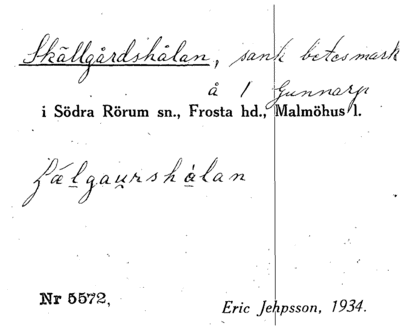 Skällgårdshålan, sank betesmark
å 1 Gunnarp
i Södra Rörum sn., Frosta hd., Malmöhus l.
Nr 5572,
Eric Jehpsson, 1934.